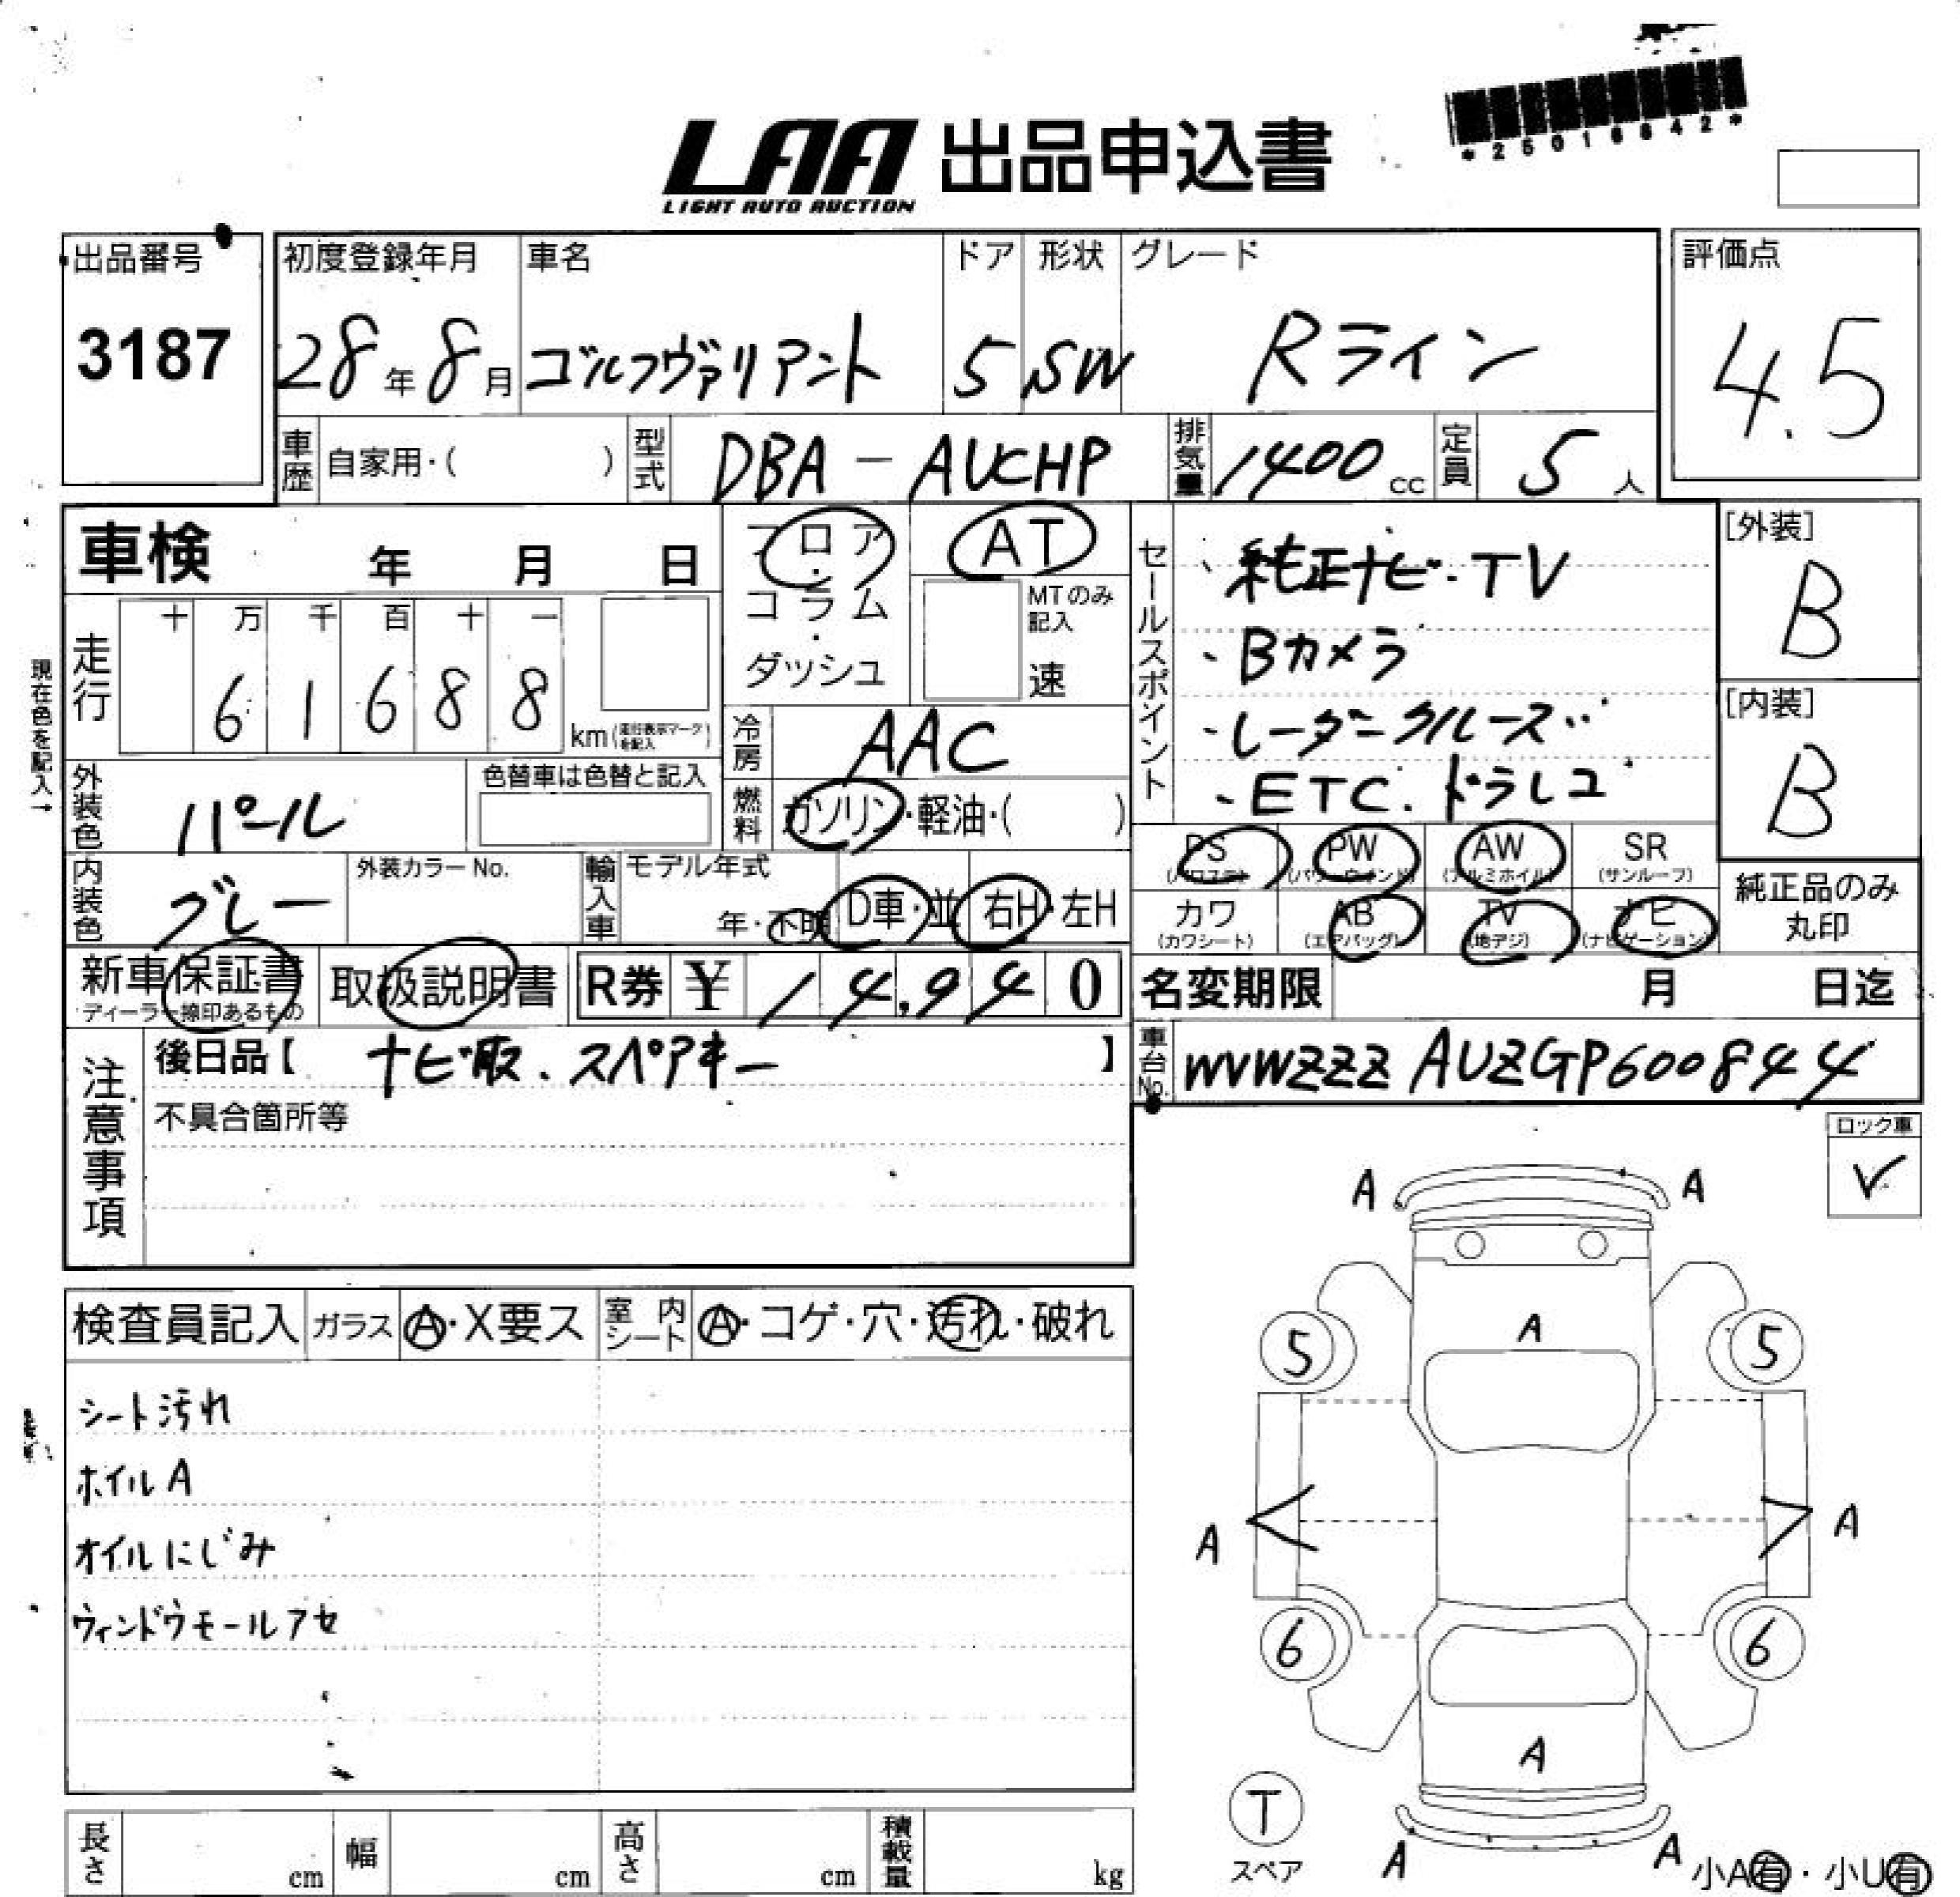 *25016842*
LAA 出品申込書
LIGHT AUTO AUCTION
出品番号 初度登録年月 車名 ドア 形状 グレード 評価点
3187 28年8月 ゴルフヴァリアント 5 SW Rライン 4.5
車歴 自家用・( ) 型式 DBA-AUCHP 排気量 1400cc 定員 5人
車検 年 月 日
フロア・コラム・ダッシュ
AT
MTのみ記入
速
セールスポイント
・純正ナビ・TV
・Bカメラ
・レーダークルーズ
・ETC.ドラレコ
[外装]
B
[内装]
B
現在色を記入→
走行 十 万 千 百 十 一
6 1 6 8 8
km(走行表示マークを記入)
冷房 AAC
外装色 パール 色替車は色替と記入
燃料 ガソリン・軽油・( )
PS (パワステ) PW (パワーウインド) AW (アルミホイル) SR (サンルーフ)
カワ (カワシート) AB (エアバッグ) TV (地デジ) ナビ (ナビゲーション)
純正品のみ
丸印
内装色 グレー 外装カラーNo. 輸入車 モデル年式 年・不明 D車・並 右H・左H
新車保証書 取扱説明書 R券 ¥ 14,940 名変期限 月 日迄
ディーラー捺印あるもの
注意事項
後日品【 ナビ取、スペアキー 】
車台No. WVWZZZAUZGP600844
不具合箇所等
ロック車
✓
A A
検査員記入 ガラス A・X要ス 室内シート A・コゲ・穴・汚れ・破れ
A
5 5
シート汚れ
ホイルA
A A
オイルにじみ
ウィンドウモールアセ
6 6
A
T
スペア
A A
小A有・小U有
長さ cm 幅 cm 高さ cm 積載量 kg